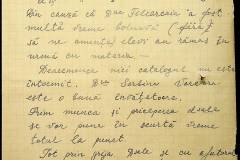 Din cauză că D-na Felecăroiu a fost
multă vreme bolnavă (fără)
să ne amintești elevi au rămas în
urmă cu materia. —
Deasemenea nici catalogul nu este
întocmit. D-na Sorbina
este o bună învățătoare.
Prin munca și priceperea d-sale
se vor pune în scurtă vreme
totul la punct.
Tot prin grija d-sale și cu ajutorul